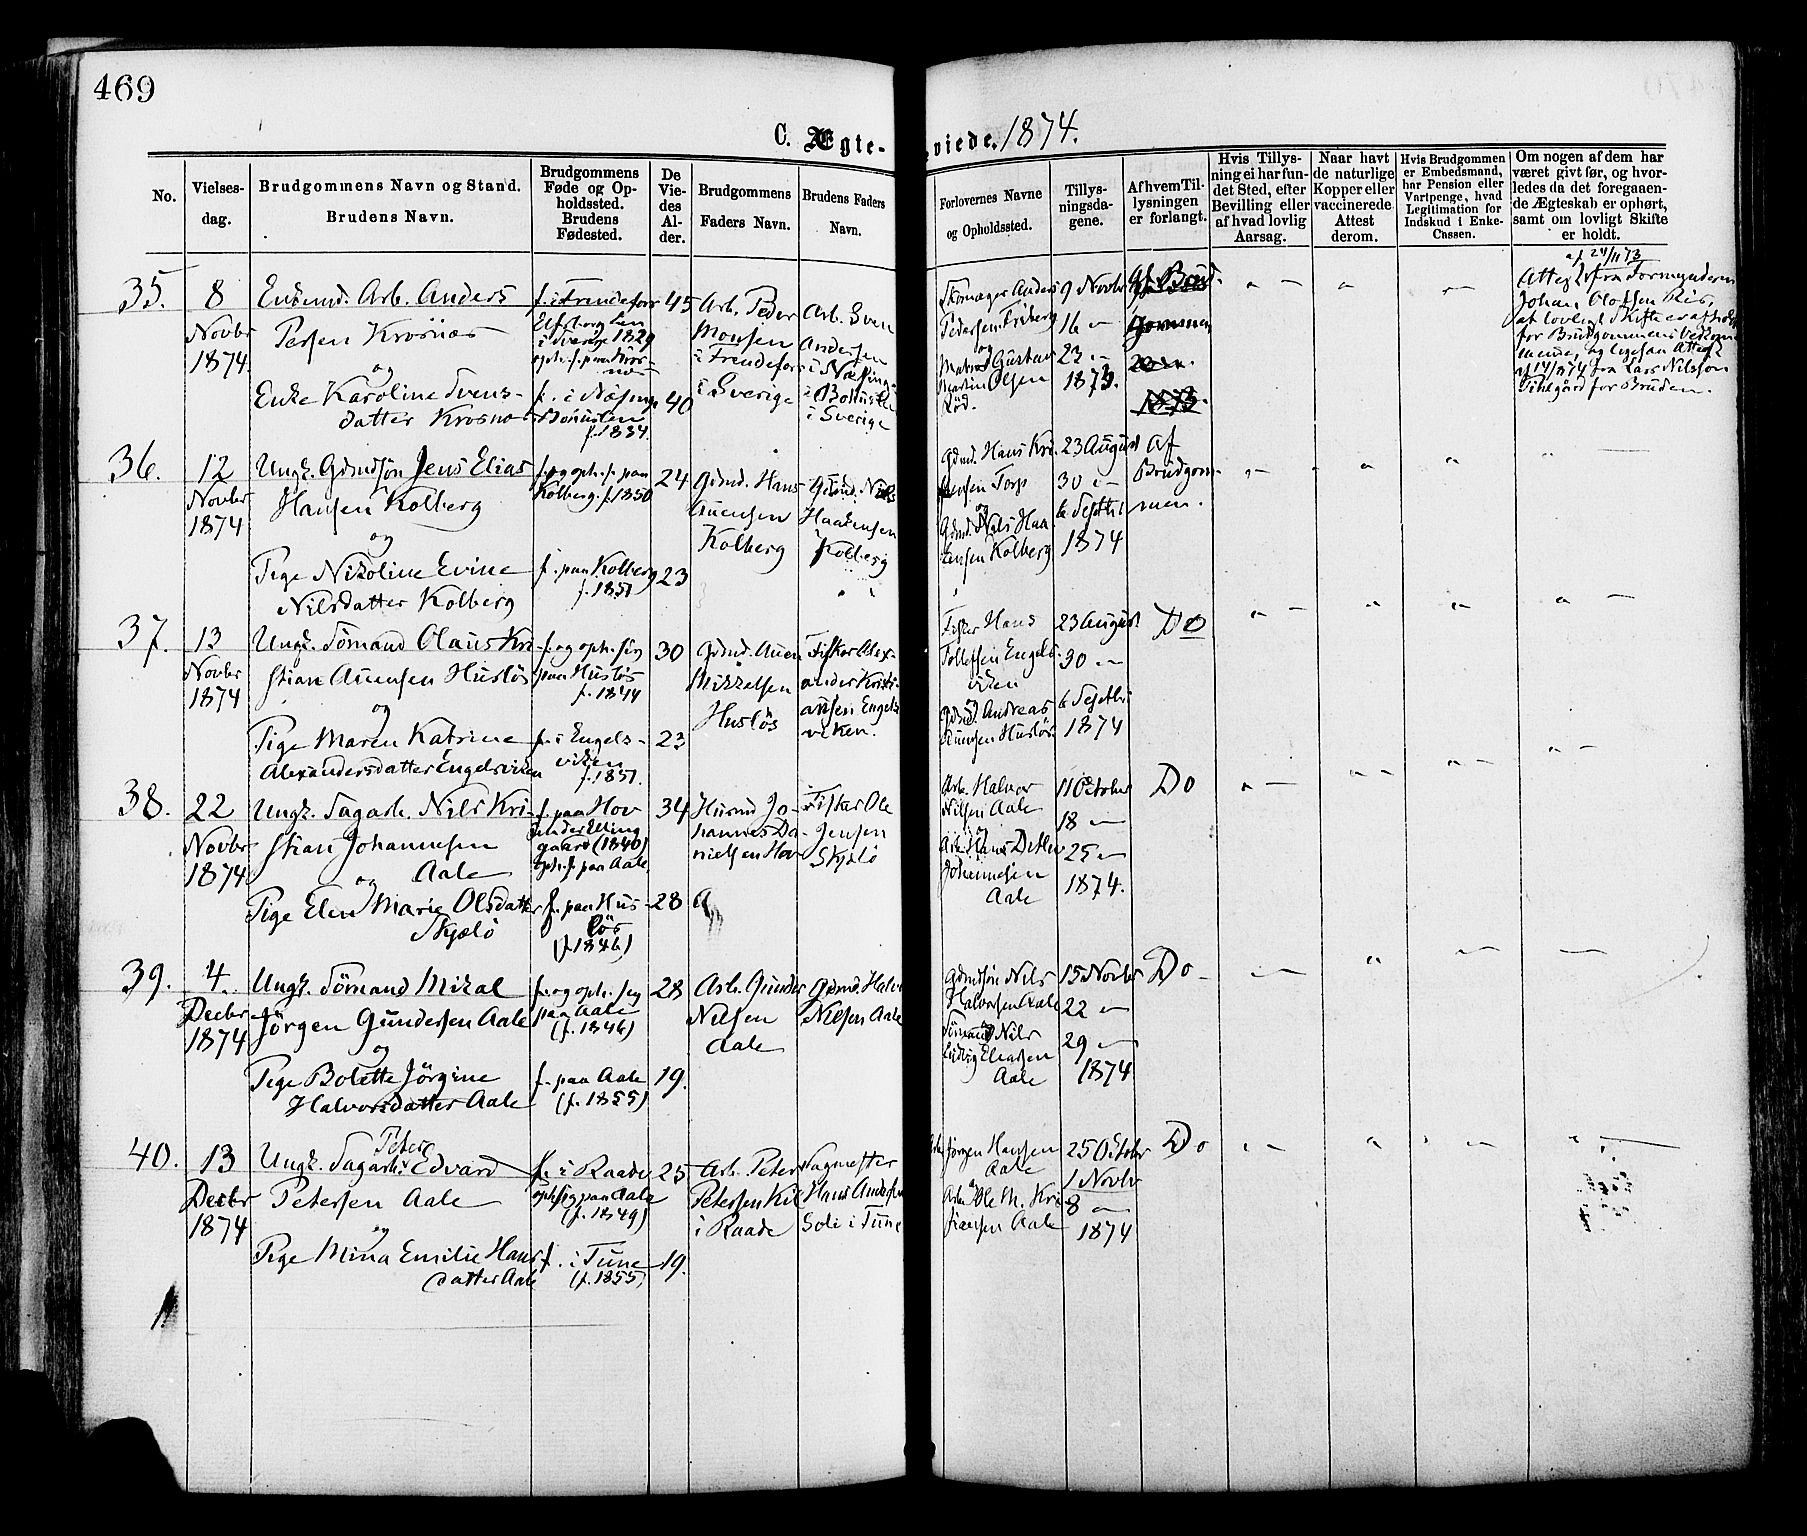 469
C. Ægte-viede. 1874.
No.
Vielses-
dag.
Brudgommens Navn og Stand.
Brudens Navn.
Brudgommens
Føde og Op-
holdssted.
Brudens
Fødested.
De
Vie-
des
Al-
der.
Brudgommens
Faders Navn.
Brudens Faders
Navn.
Forlovernes Navne
og Opholdssted.
Tillys-
ningsda-
gene.
Af hvem Til-
lysningen
er forlangt.
Hvis Tillys-
ning ei har fun-
det Sted, efter
Bevilling eller
af hvad lovlig
Aarsag.
Naar havt
de naturlige
Kopper eller
vaccinerede.
Attest
derom.
Hvis Brudgommen
er Embedsmand,
har Pension eller
Vartpenge, hvad
Legitimation for
Indskud i Enke-
Cassen.
Om nogen af dem har
været givt før, og hvor-
ledes da det foregaaen-
de Ægteskab er ophørt,
samt om lovligt Skifte
er holdt.
35.
8
Novbr
1874
Enkemd. Arb. Anders
Persen Krosnæs
og
Enke Karoline Svens-
datter Krosnæs
f. i Frendefors
Elfsborg Len
i Sverige 1829
f. i Näsinge
Bohuslen
f. 1834.
45
40
Arb. Peder
Monsen
i Frendefors
i Sverige
Arb. Sven
Andersen
i Næsinge
i Bohuslen
i Sverige
Skomager Anders
Pedersen Friberg
og
Matros Gustav
Martin Olsen
Rød.
9 Novbr
16 –
23 –
1873.
af Brud-
gommen
1873.
af 24/11 73
Attest fra Formynderen
Johan Olofsen Ris,
at lovligt Skifte er afholdt
for Brudgommens Vedkom-
mende, og ligesaa Attest
af 14/1 74 fra Lars Nilsson
for Bruden.
36.
12
Novbr
1874
Ungk. Gdmdsøn Jens Elias
Hansen Kolberg
og
Pige Nikoline Evine
Nilsdatter Kolberg
f. og oph. s. paa
Kolberg. f. 1850
f. paa Kolberg
f. 1851
24
23
Gdmd. Hans
Auensen
Kolberg
Gdmd. Nils
Haakensen
Kolberg
Gdmd. Hans Kri-
stensen Torp
og
Gdmd. Nils Haa-
kensen Kolberg
23 August
30 –
6 Septbr
1874
Af
Brudgom-
men.
37.
13
Novbr
1874
Ungk. Sömand Olaus Kri-
stian Auensen Husløs
og
Pige Maren Katrine
Alexandersdatter Engelsviken
f. og oph. sig
paa Husløs
f. 1844
f. i Engels-
viken
f. 1851.
30
23
Gdmd. Auen
Mikkelsen
Husløs
Fisker Alex-
ander Kristi-
ansen Engels-
viken.
Fisker Hans
Tollefsen Engels-
viken
og
Gdmd. Andreas
Auensen Husløs.
23 August
30 –
6 Septbr
1874
Do
38.
22
Novbr
1874
Ungk. Dagarb. Nils Kri-
stian Johannesen
Aale
og
Pige Elen Marie Olsdatter
Skjælö
f. paa Hov
under Elling-
gaard (1840)
oph. s. paa Aale.
f. paa Hus-
løs
(f. 1846)
34
28
Husmd Jo-
hannes Da-
nielsen Hov
Fisker Ole
Jensen
Skjælö
Arb. Halvor
Nilsen Aale
Arb. Hans Detlev
Johannesen
Aale
11 October
18 –
25 –
1874.
Do
39.
4
Decbr
1874
Ungk. Sömand Mikal
Jörgen Gundersen Aale
og
Pige Bolette Jörgine
Halvorsdatter Aale
f. og oph. sig
paa Aale
(f. 1846)
f. paa Aale
(f. 1855)
28
19.
Arb. Gunder
Nilsen
Aale
Gdmd. Halvor
Nilsen Aale
Gdmdsön Nils
Halvorsen Aale
Sömand Nils
Ludvig Eliassen
Aale
15 Novbr
22 –
29 –
1874
Do
40.
13
Decbr
1874
Peter
Ungk. Dagarb. Edvard
Petersen Aale
og
Pige Mina Emilie Hans-
datter Aale
f. i Raade
oph. sig paa Aale
(f. 1849)
f. i Tune
(f. 1855)
25
19.
Arb. Peter
Petersen Kil
i Raade
Bagmester
Hans Andersen
Soli i Tune
Arb. Jörgen Hansen
Aale
og
Arb. Ole M. Kri-
stiansen Aale
25 October
1 Novbr
8 –
1874
Do